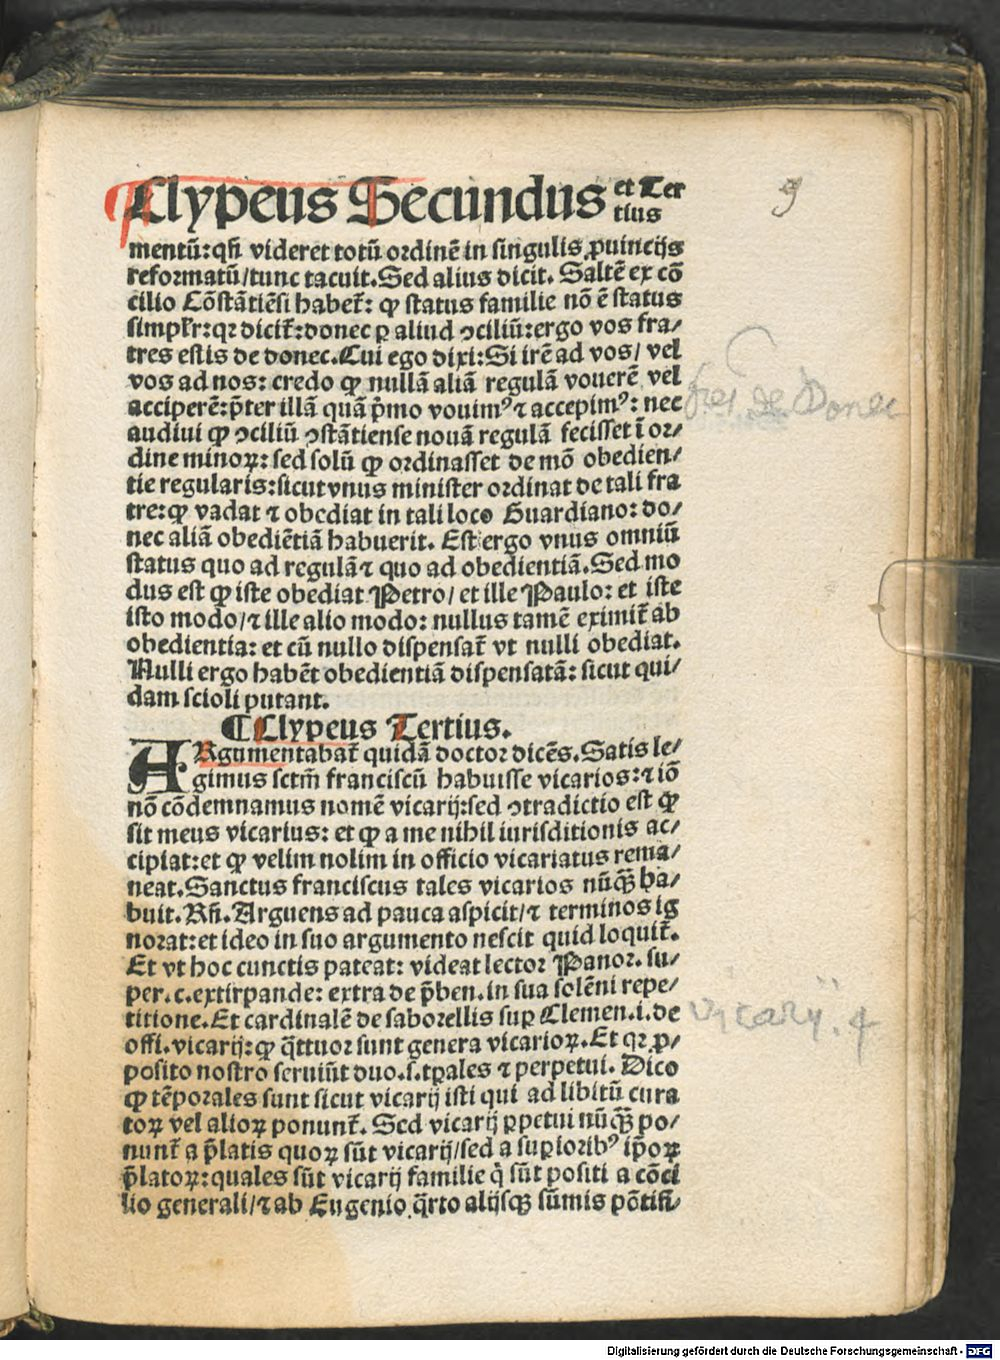 Clypeus Secundus et Ter
tius
9
mentū: qñ videret totū ordinē in singulis ꝓuincijs
reformatū/ tunc tacuit. Sed alius dicit. Saltē ex cō
cilio Cōstātiēsi habet̄: ꝙ status familie nō ē status
simpłr: qꝛ dicit̄: donec ꝑ aliud ↄciliū: ergo vos fra⸗
tres estis de donec. Cui ego dixi: Si irē ad vos/ vel
vos ad nos: credo ꝙ nullā aliā regulā vouerē vel
acciperē: p̄ter illā quā p̄mo vouimꝰ ⁊ accepimꝰ: nec
fres de Donec
audiui ꝙ ↄciliū ↄstātiense nouā regulā fecisset ī or⸗
dine minoꝝ: sed solū ꝙ ordinasset de mō obedien⸗
tie regularis: sicut vnus minister ordinat de tali fra
tre: ꝙ vadat ⁊ obediat in tali loco Guardiano: do⸗
nec aliā obediētiā habuerit. Est ergo vnus omniū
status quo ad regulā ⁊ quo ad obedientiā. Sed mo
dus est ꝙ iste obediat Petro/ et ille Paulo: et iste
isto modo/ ⁊ ille alio modo: nullus tamē eximit̄ ab
obedientia: et cū nullo dispensat̄ vt nulli obediat.
Nulli ergo habēt obedientiā dispensatā: sicut qui⸗
dam scioli putant.
¶ Clypeus Tertius.
ARgumentabat̄ quidā doctor dicēs. Satis le⸗
gimus sctm̄ franciscū habuisse vicarios: ⁊ iō
nō cōdemnamus nomē vicarij: sed ↄtradictio est ꝙ
sit meus vicarius: et ꝙ a me nihil iurisditionis ac⸗
cipiat: et ꝙ velim nolim in officio vicariatus rema⸗
neat. Sanctus franciscus tales vicarios nūꝙ̄ ha⸗
buit. Rñ. Arguens ad pauca aspicit/ ⁊ terminos ig
norat: et ideo in suo argumento nescit quid loquit̄.
Et vt hoc cunctis pateat: videat lector Panor. su⸗
per. c. extirpande: extra de p̄ben. in sua solēni repe⸗
titione. Et cardinalē de saborellis suꝑ Clemen. i. de
vicarij. 4
offi. vicarij: ꝙ q̄ttuor sunt genera vicarioꝝ. Et qꝛ ꝓ⸗
posito nostro seruiūt duo. s. tꝑales ⁊ perpetui. Dico
ꝙ tēporales sunt sicut vicarij isti qui ad libitū cura
toꝝ vel alioꝝ ponunt̄. Sed vicarij ꝑpetui nūꝙ̄ po⸗
nunt̄ a p̄latis quoꝝ sūt vicarij/ sed a suꝑioribꝰ ip̄oꝝ
p̄latoꝝ: quales sūt vicarij familie q̄ sūt positi a cōci
lio generali/ ⁊ ab Eugenio q̄rto alijsꝙ sūmis pōtifi⸗
Digitalisierung gefördert durch die Deutsche Forschungsgemeinschaft - DFG